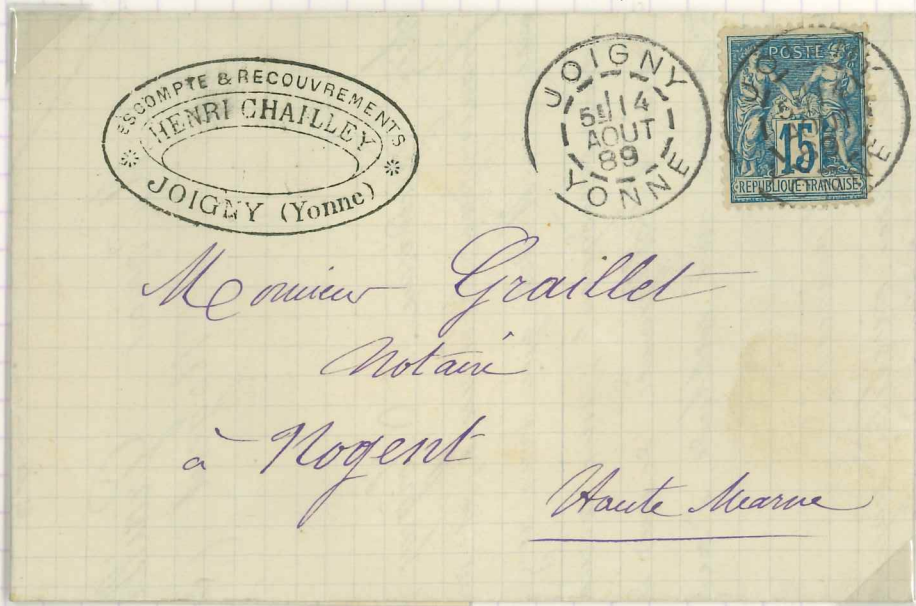 ESCOMPTE & RECOUVREMENTS
HENRI CHAILLEY
JOIGNY (Yonne)
JOIGNY
5E 14
AOUT
89
YONNE
POSTE
15
REPUBLIQUE FRANÇAISE
Monsieur Graillet
Notaire
à Nogent
Haute Marne